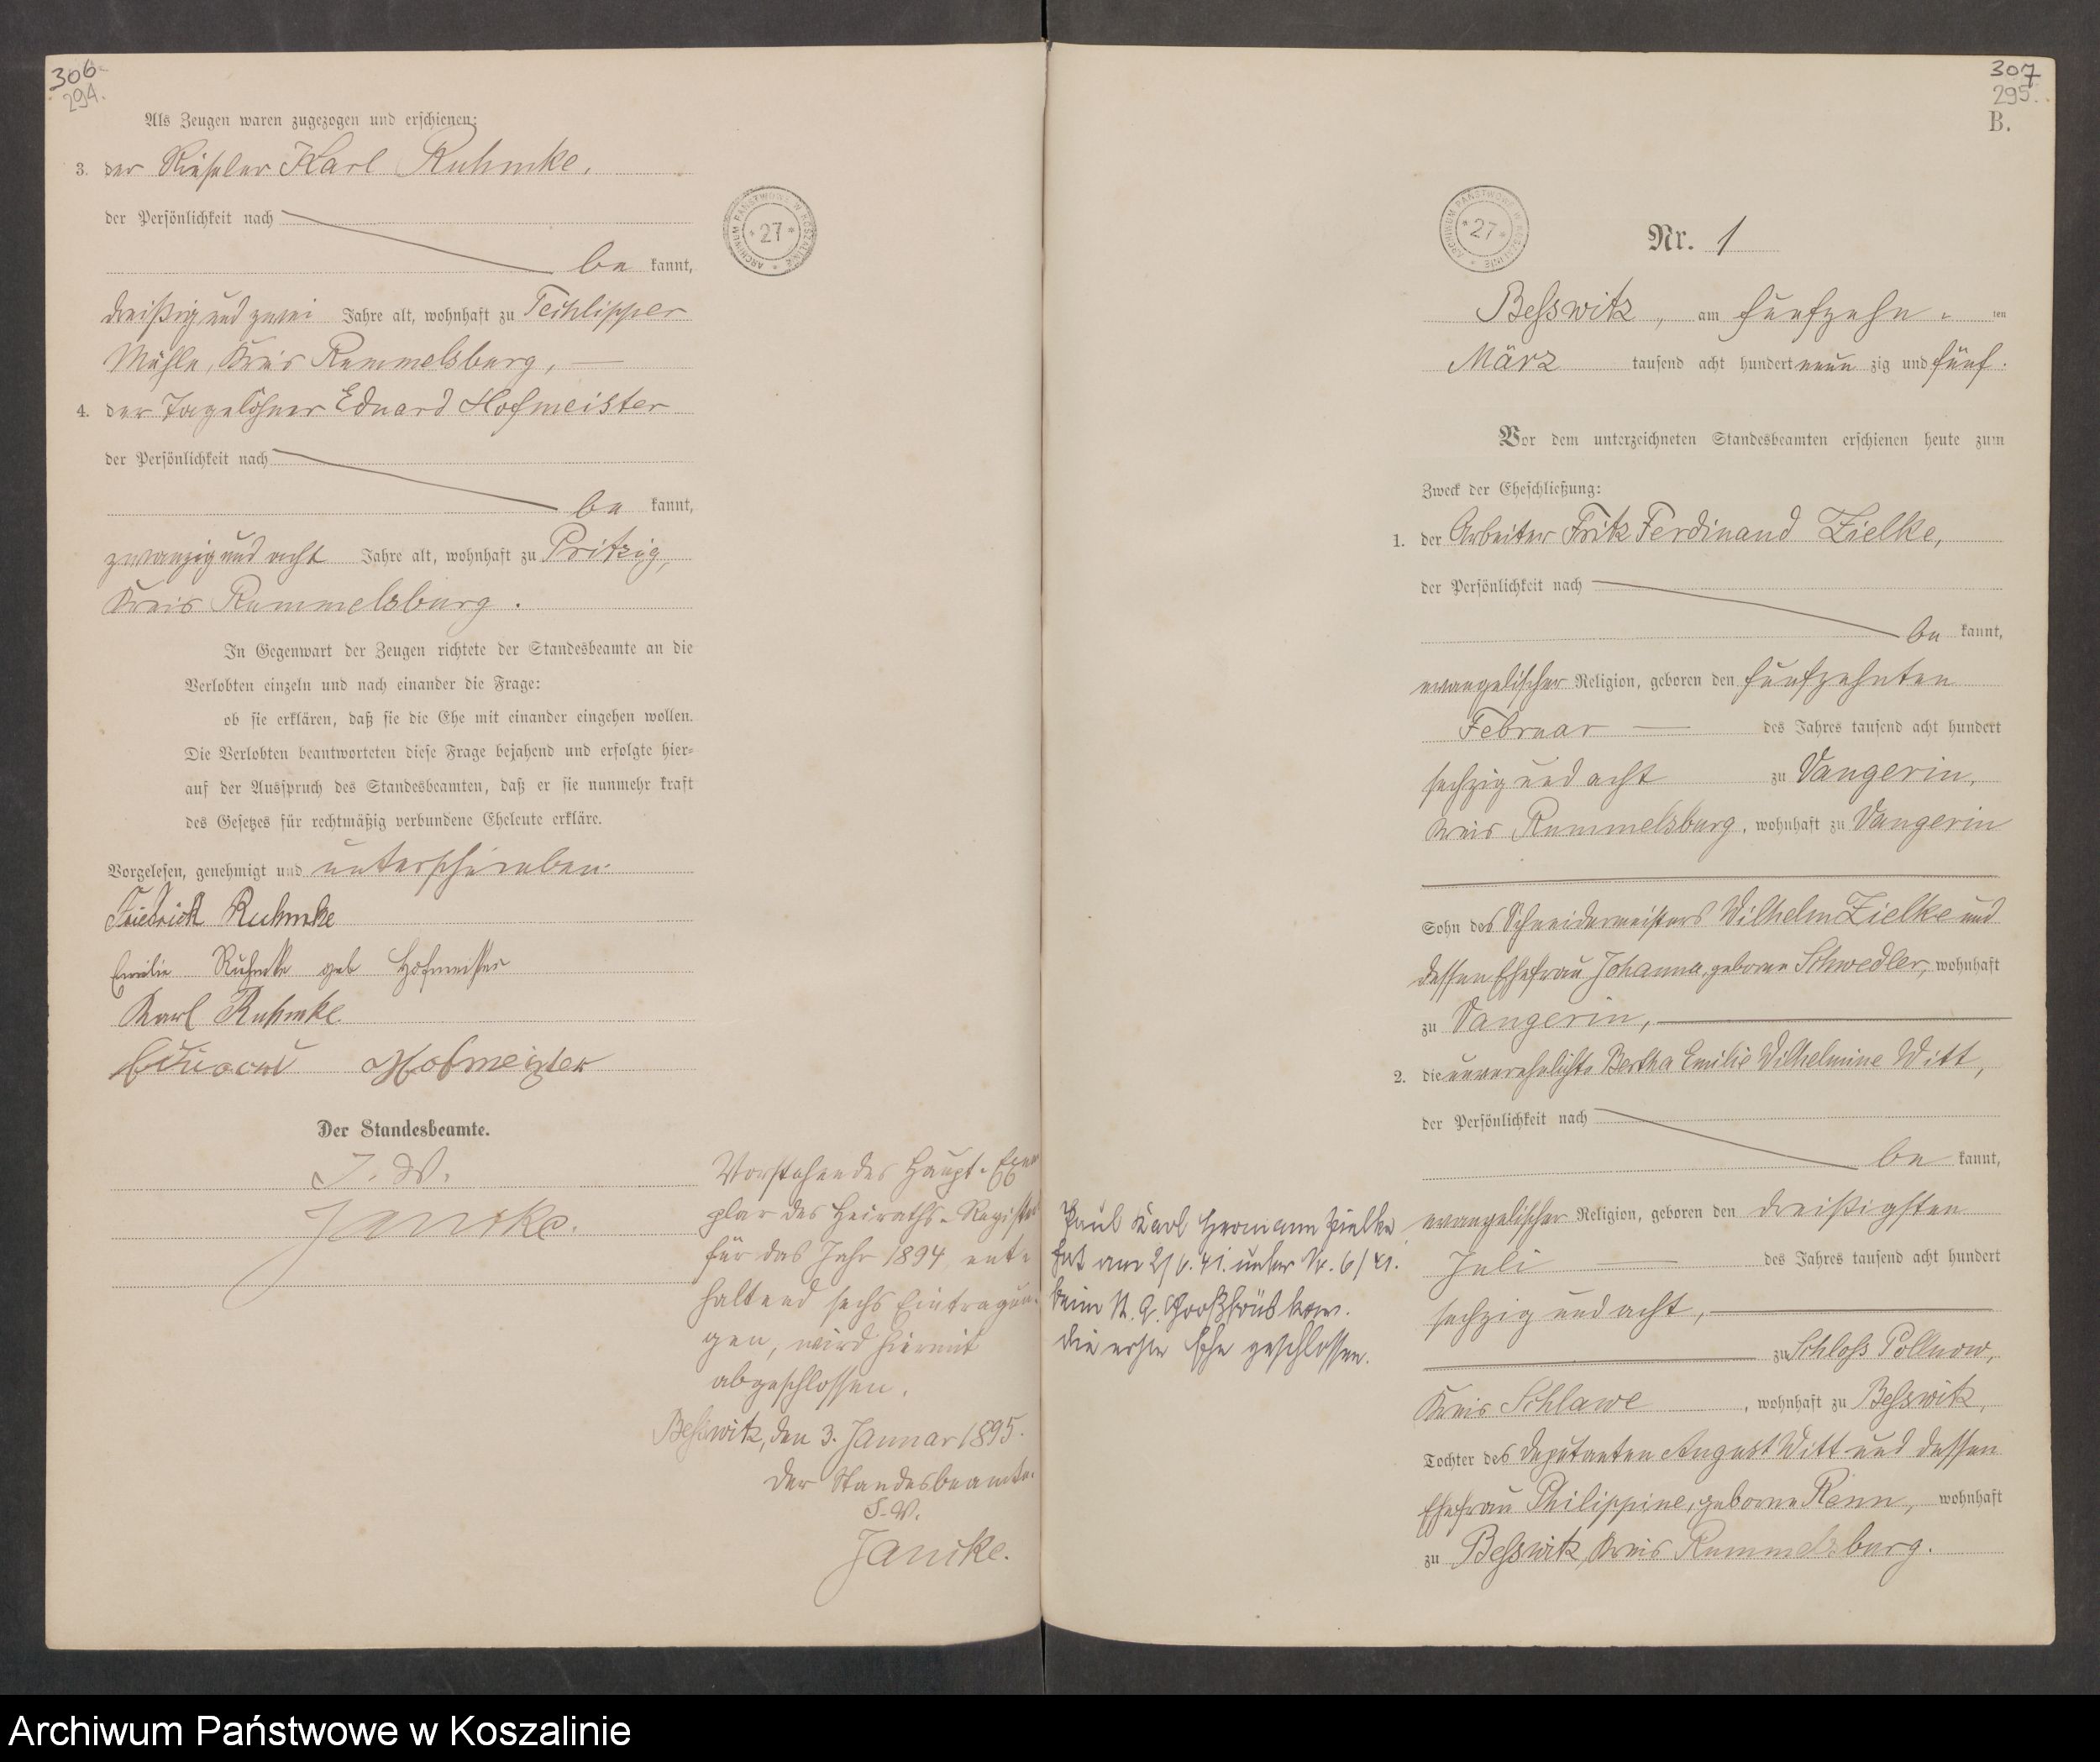 306
294.
Als Zeugen waren zugezogen und erschienen:
3. der Rieseler Karl Ruhmke,
der Persönlichkeit nach
be kannt,
dreißig und zwei Jahre alt, wohnhaft zu Techlipper
Mühle, Kreis Rummelsburg,
4. der Tagelöhner Eduard Hofmeister
der Persönlichkeit nach
be kannt,
zwanzig und acht Jahre alt, wohnhaft zu Pritzig,
Kreis Rummelsburg.
In Gegenwart der Zeugen richtete der Standesbeamte an die
Verlobten einzeln und nach einander die Frage:
ob sie erklären, daß sie die Ehe mit einander eingehen wollen.
Die Verlobten beantworteten diese Frage bejahend und erfolgte hier-
auf der Ausspruch des Standesbeamten, daß er sie nunmehr kraft
des Gesetzes für rechtmäßig verbundene Eheleute erkläre.
Vorgelesen, genehmigt und unterschrieben:
Friedrich Ruhmke
Emilie Ruhmke geb Hofmeister
Karl Ruhmke
Eduard Hofmeister
Der Standesbeamte.
J. V.
Jancke.
Vorstehendes Haupt-Exem
plar des Heiraths-Registers
für das Jahr 1894, ent-
haltend sechs Eintragun-
gen, wird hiermit
abgeschlossen.
Beßwitz, den 3. Januar 1895.
Der Standesbeamte.
J. V.
Jancke.
ARCHIWUM PAŃSTWOWE W KOSZALINIE
* 27 *
307
295.
B.
ARCHIWUM PAŃSTWOWE W KOSZALINIE
* 27 *
Nr. 1
Beßwitz, am fünfzehn ten
März tausend acht hundert neun zig und fünf.
Vor dem unterzeichneten Standesbeamten erschienen heute zum
Zweck der Eheschließung:
1. der Arbeiter Fritz Ferdinand Zielke,
der Persönlichkeit nach
be kannt,
evangelischer Religion, geboren den fünfzehnten
Februar des Jahres tausend acht hundert
sechzig und acht zu Vangerin,
Kreis Rummelsburg, wohnhaft zu Vangerin
Sohn des Schneidermeisters Wilhelm Zielke und
dessen Ehefrau Johanna, geborne Schwedler, wohnhaft
zu Vangerin,
2. die unverehelichte Bertha Emilie Wilhelmine Witt,
der Persönlichkeit nach
be kannt,
evangelischer Religion, geboren den dreißigsten
Juli des Jahres tausend acht hundert
sechzig und acht,
zu Schloß Pollnow,
Kreis Schlawe, wohnhaft zu Beßwitz,
Tochter des Deputanten August Witt und dessen
Ehefrau Philippine, geborne Renn, wohnhaft
zu Beßwitz, Kreis Rummelsburg.
Paul Karl Hermann Zielke
hat am 2/6. 41. unter Nr. 6/41.
beim St. A.
die erste Ehe geschlossen.
Archiwum Państwowe w Koszalinie